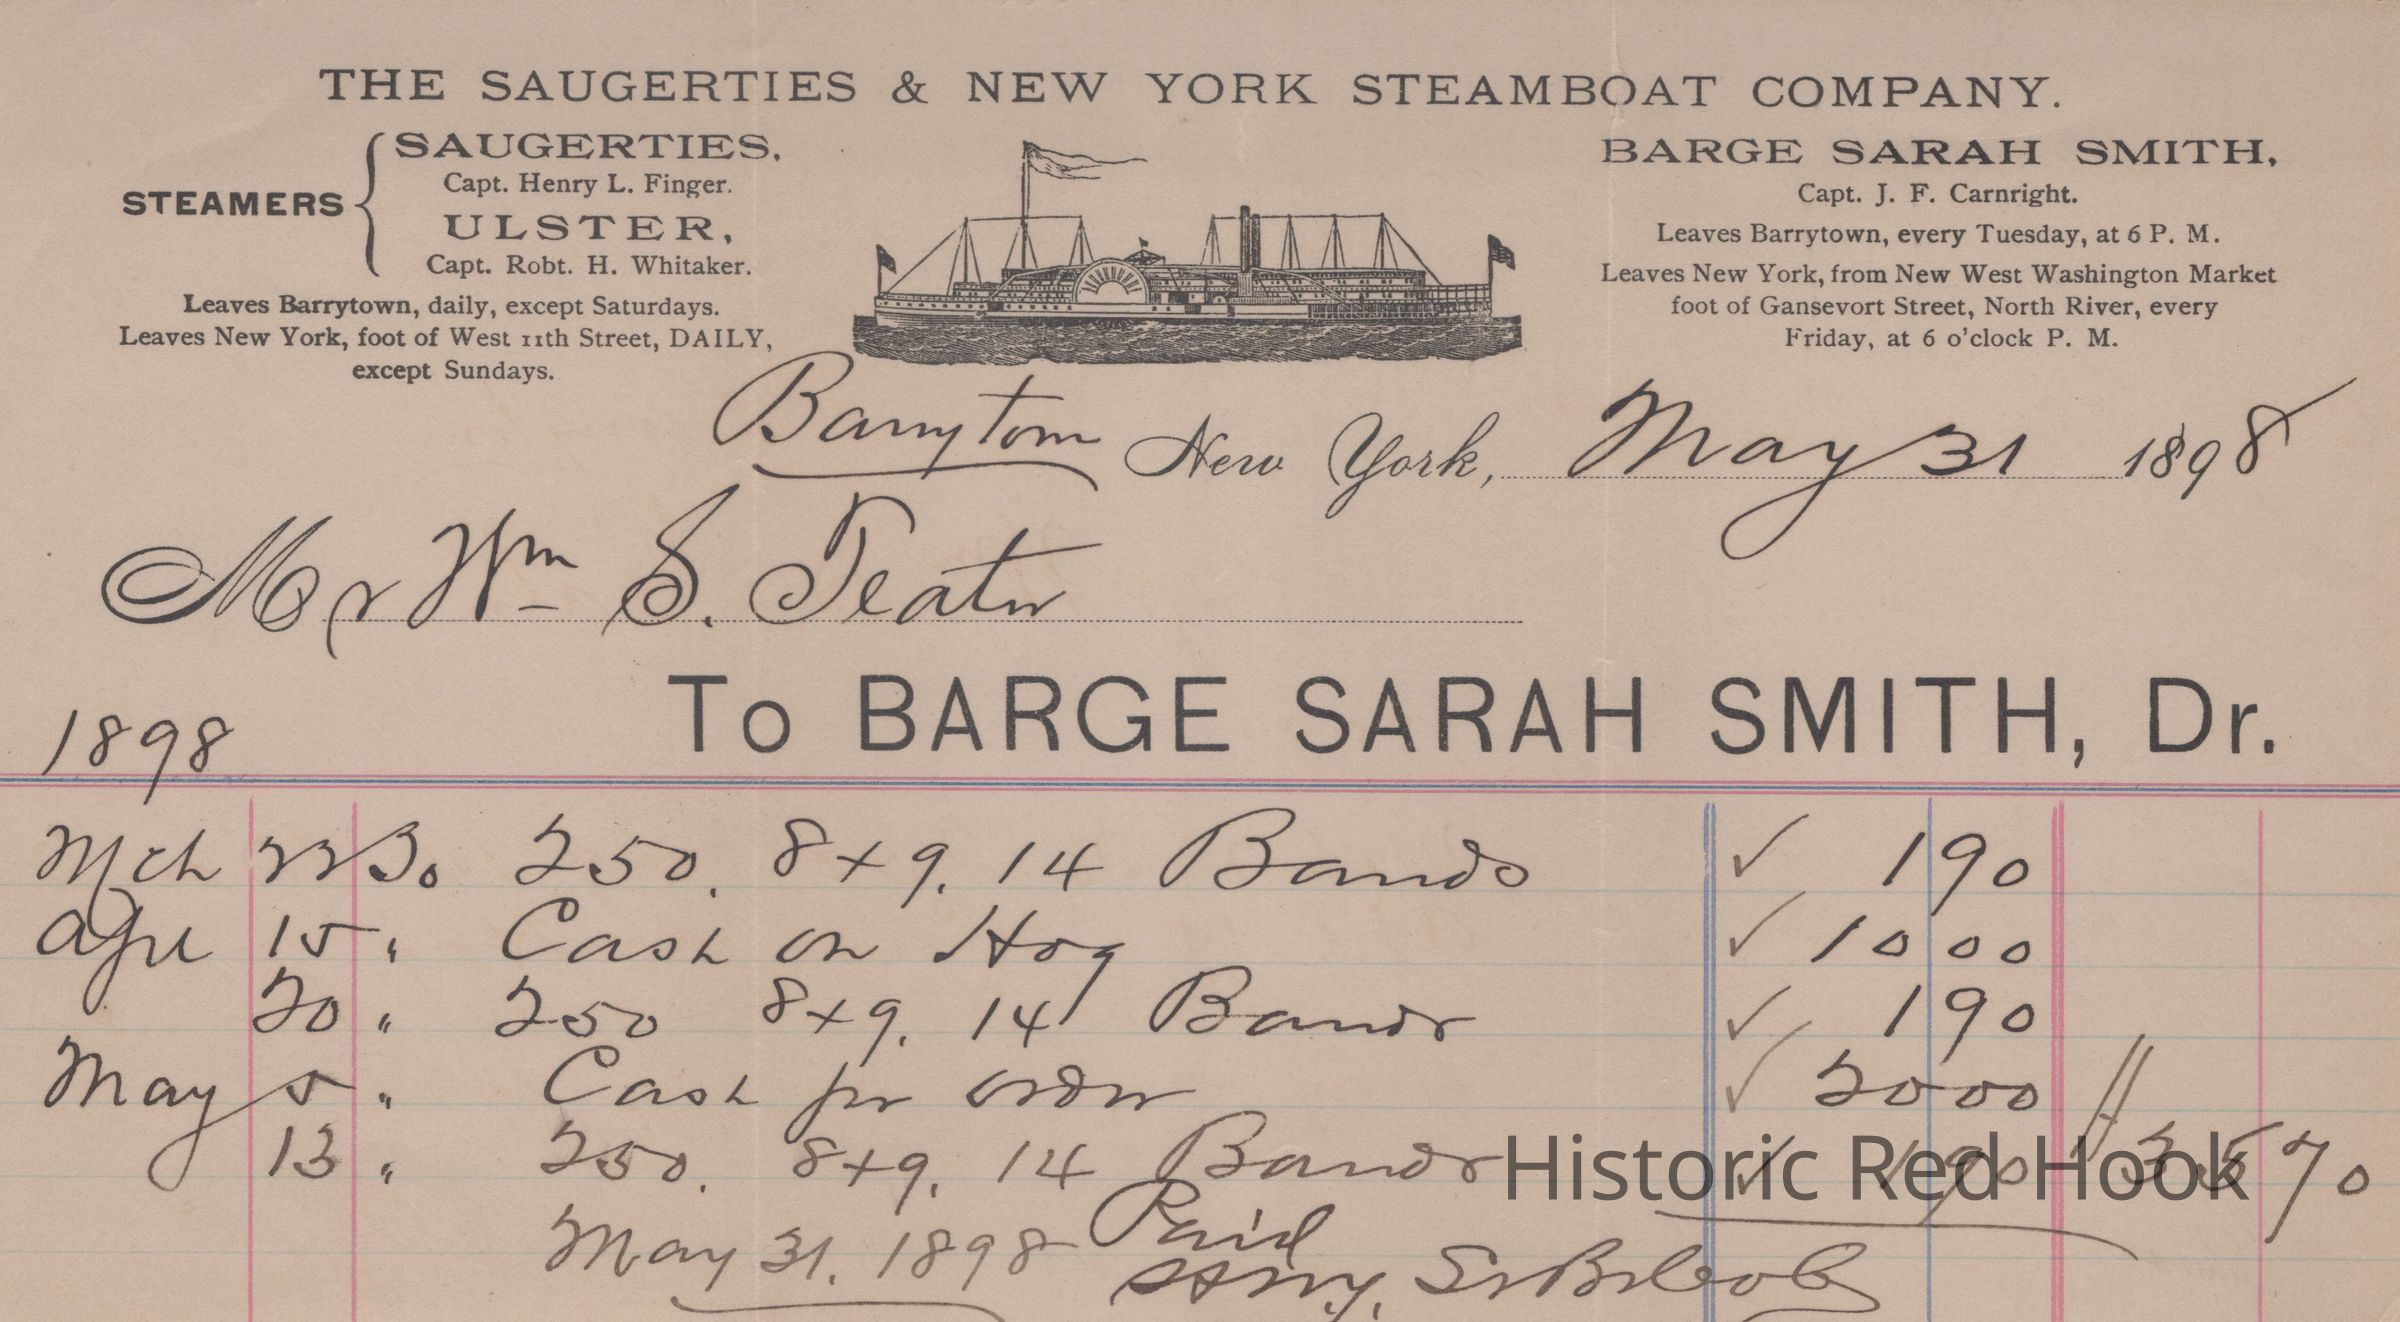 THE SAUGERTIES & NEW YORK STEAMBOAT COMPANY.
STEAMERS
SAUGERTIES,
Capt. Henry L. Finger.
ULSTER,
Capt. Robt. H. Whitaker.
Leaves Barrytown, daily, except Saturdays.
Leaves New York, foot of West 11th Street, DAILY,
except Sundays.
BARGE SARAH SMITH,
Capt. J. F. Carnright.
Leaves Barrytown, every Tuesday, at 6 P. M.
Leaves New York, from New West Washington Market
foot of Gansevort Street, North River, every
Friday, at 6 o'clock P. M.
Barrytown New York, May 31 1898
Mr Wm S. Teator
To BARGE SARAH SMITH, Dr.
1898
Mch 22 Bo 250. 8x9. 14 Bands ✓ 1 90
Apl 15 " Cash on Hog ✓ 10 00
20 " 250 8x9. 14 Bands ✓ 1 90
May 5 " Cash pr order ✓ 20 00
13 " 250. 8x9. 14 Bands ✓ 1 90 35 70
May 31. 1898 Paid
Historic Red Hook